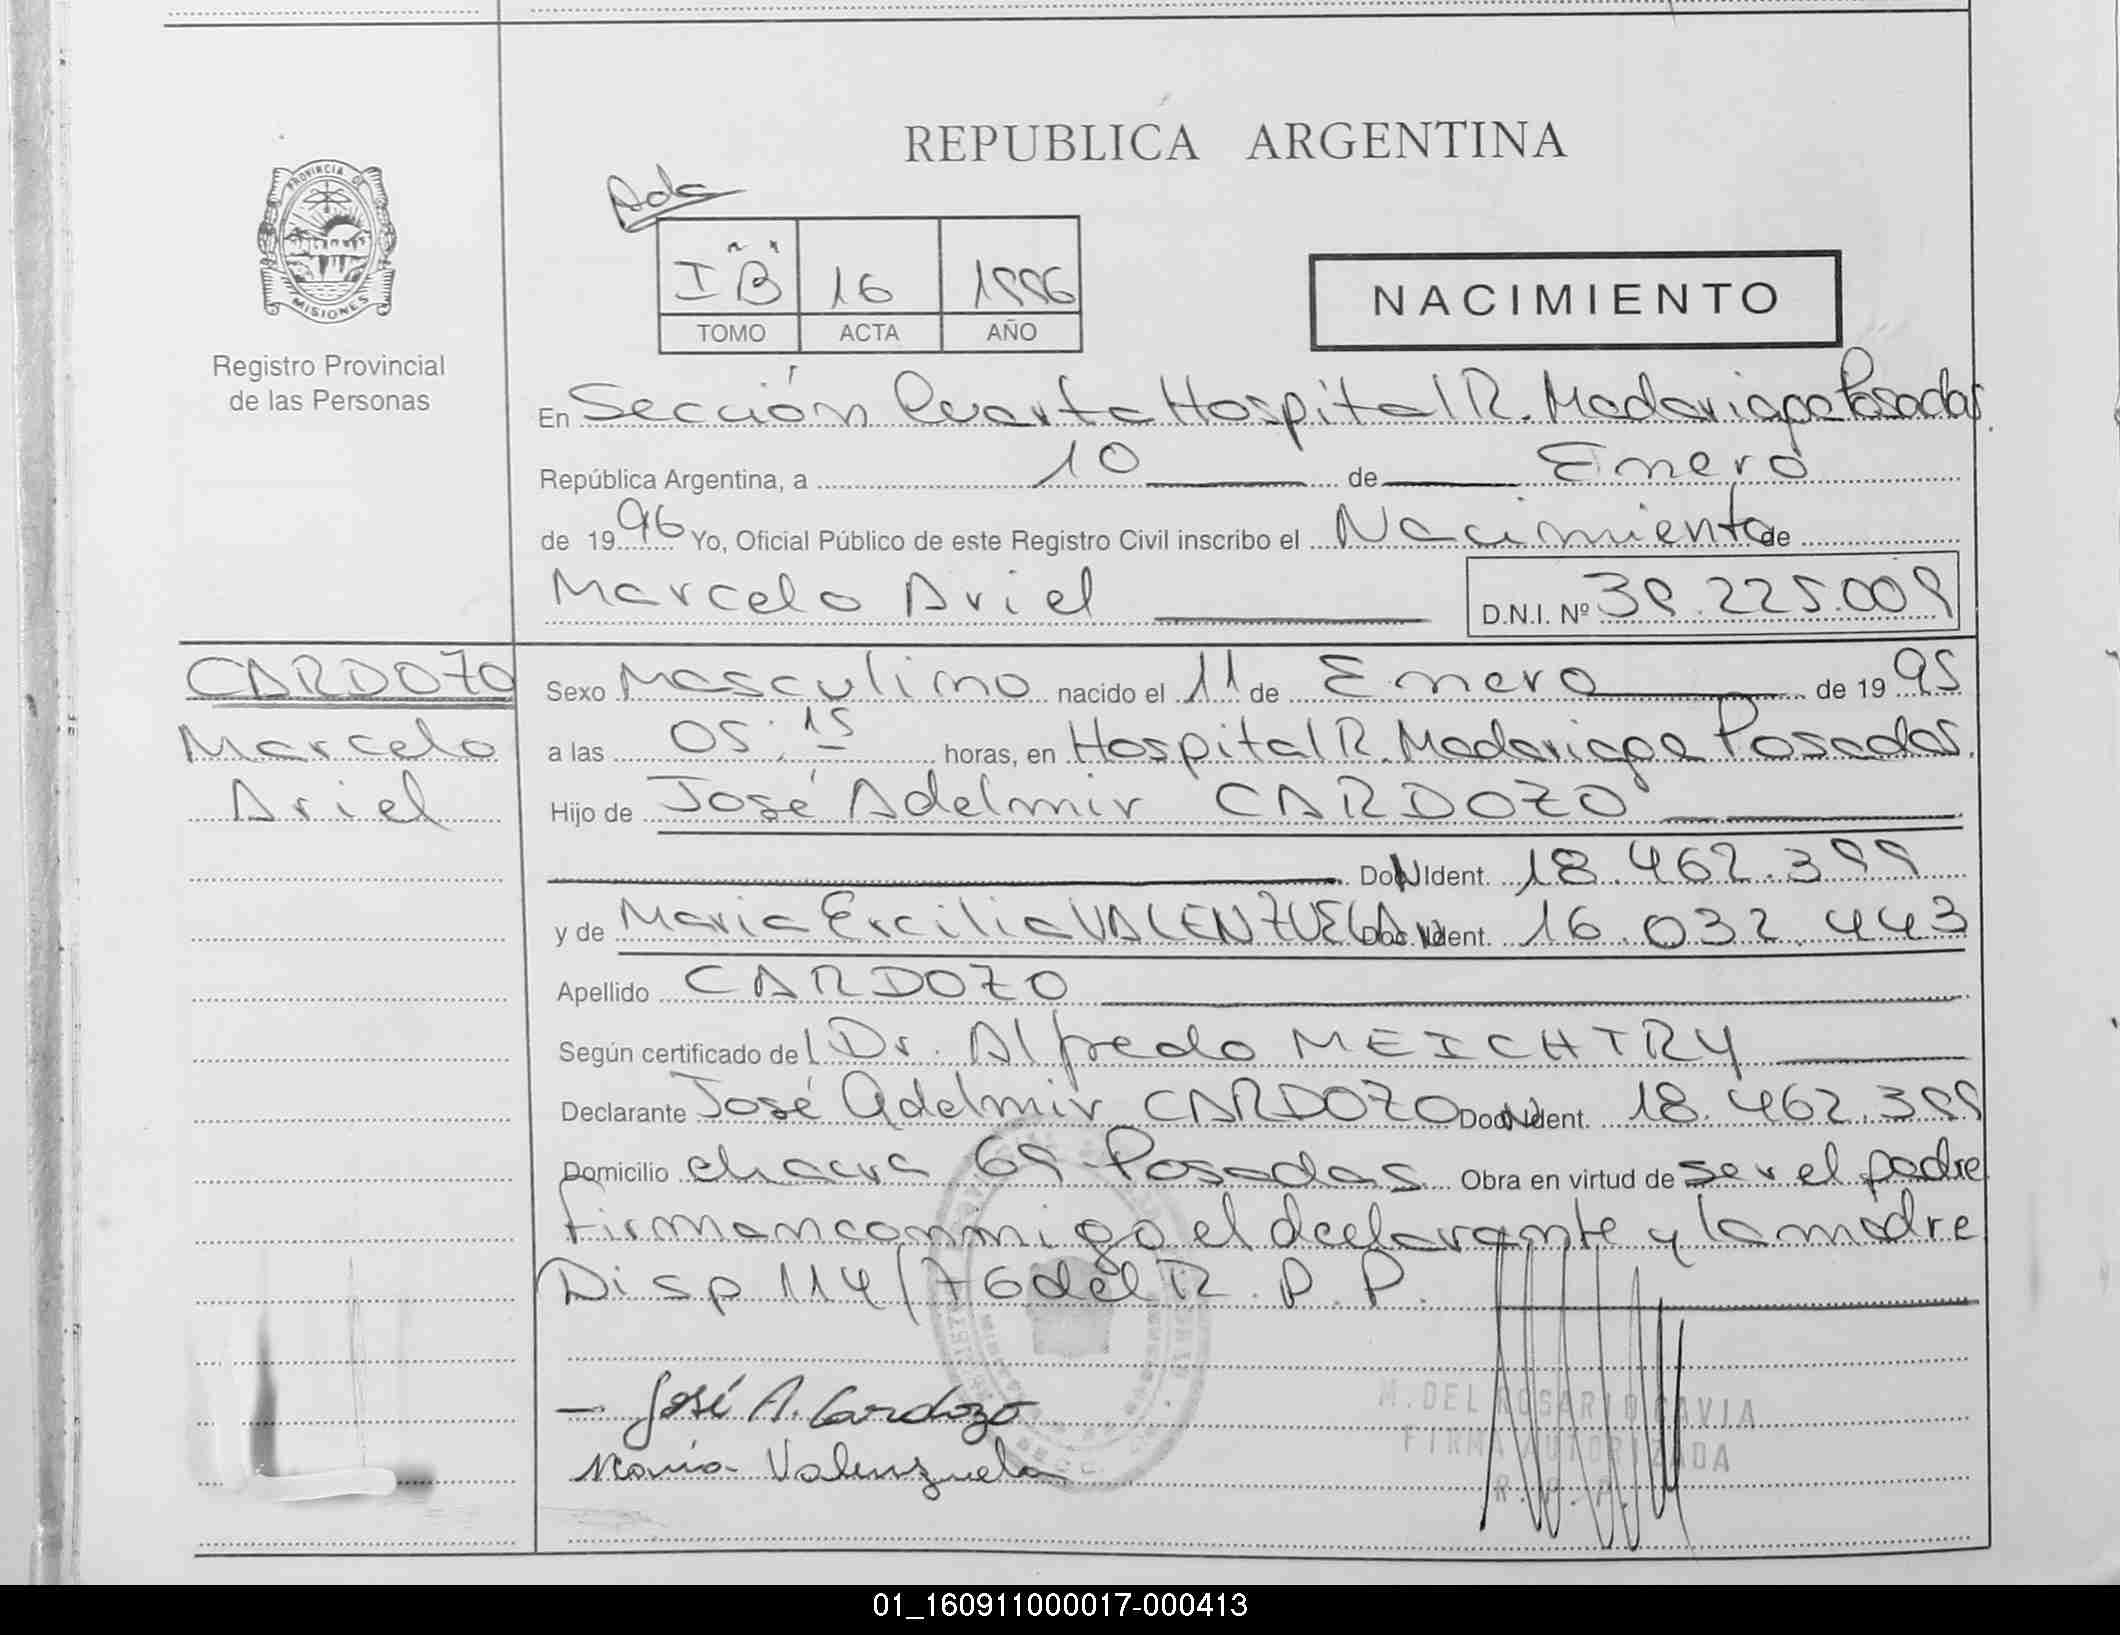 REPUBLICA ARGENTINA
PROVINCIA DE
MISIONES
Registro Provincial
de las Personas
I "B" 16 1996
TOMO ACTA AÑO
NACIMIENTO
En Sección Cuarta Hospital R. Madariaga Posadas
República Argentina, a 10 de Enero
de 1996 Yo, Oficial Público de este Registro Civil inscribo el Nacimiento de
Marcelo Ariel D.N.I. Nº 39.225.009
CARDOZO
Marcelo
Ariel
Sexo Masculino nacido el 11 de Enero de 1995
a las 05:15 horas, en Hospital R. Madariaga Posadas.
Hijo de José Adelmir CARDOZO
Doc. Ident. 18.462.399
y de Maria Ercilia VALENZUELA Doc. Ident. 16.032.443
Apellido CARDOZO
Según certificado del Dr. Alfredo MEICHTRY
Declarante José Adelmir CARDOZO Doc. Ident. 18.462.399
Domicilio chacra 69 Posadas Obra en virtud de ser el padre
firman conmigo el declarante y la madre
Disp 114/76 del R. P. P.
José A. Cardozo
Maria Valenzuela
M. DEL ROSARIO GAVIA
FIRMA AUTORIZADA
R. P. P.
01_160911000017-000413